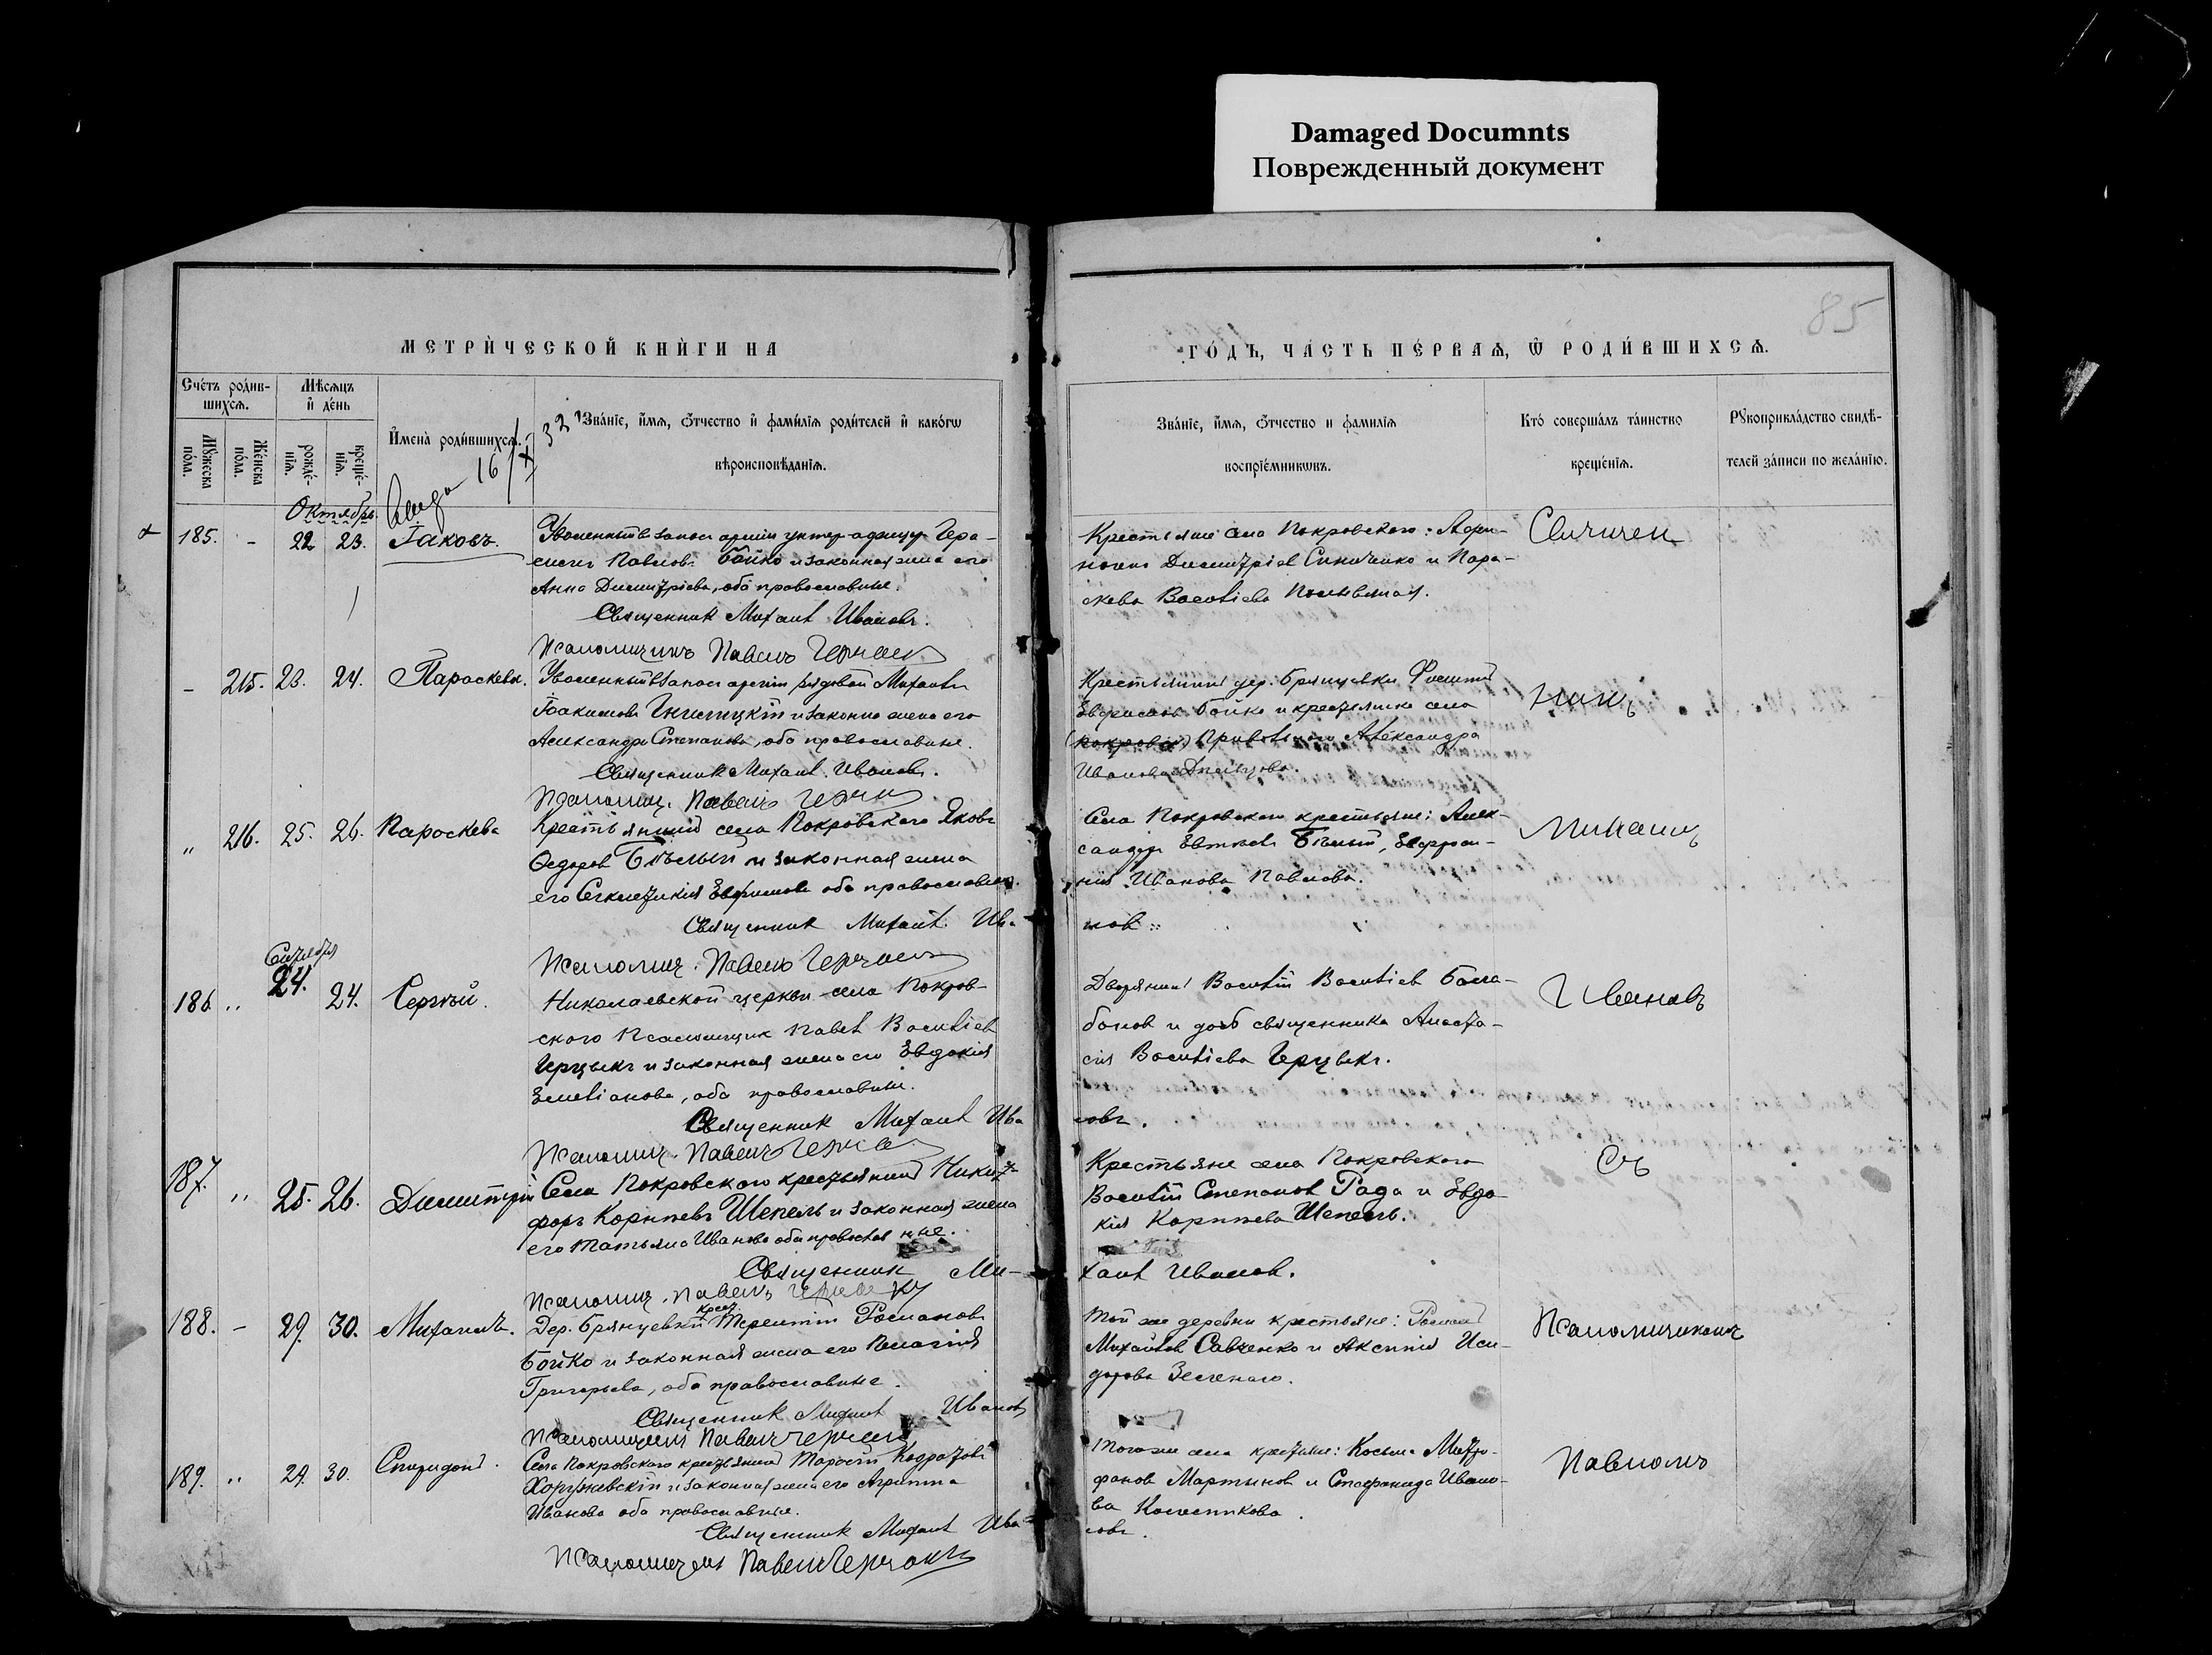 Damaged Documnts
Поврежденный документ
85
МЕТРИ́ЧЕСКОЙ КНИ́ГИ НА
ГО́ДЪ, ЧА́СТЬ ПЕ́РВАѦ, Ѿ РОДИ́ВШИХСѦ.
Сче́тъ роди́в-
шихсѧ.
Мѣ́сѧцъ
и҆ де́нь
Мꙋ́жеска
по́ла.
Же́нска
по́ла.
рожде́-
нїѧ.
креще́-
нїѧ.
И҆мена̀ роди́вшихсѧ.
Зва́нїе, и҆́мѧ, ѻ҆́тчество и҆ фами́лїѧ роди́телей и҆ како́гѡ
вѣроисповѣ́данїѧ.
Зва́нїе, и҆́мѧ, ѻ҆́тчество и фами́лїѧ
воспрїе́мникѡвъ.
Кто́ соверша́лъ та́инство
креще́нїѧ.
Рꙋкоприкла́дство свидѣ́-
телей за́писи по жела́нїю.
16
Октябрь
185. - 22 23. Іаковъ.
Уволенный въ запас армии унтер-офицер Гера-
сим Павлов Бойко и законная жена его
Анна Димитріева, оба православные.
Священник Михаил Иванов.
Псаломщикъ Павелъ
Крестьяне села Покровского:
Димитріев Синиченко и Пара-
скева Васильева
- 215. 23. 24. Параскева.
Уволенный в запас армии рядовой Михаил
Іоакимов и законная жена его
Александра Степанова, оба православные.
Священник Михаил Иванов.
Псаломщ. Павелъ
Крестьянин дер. Брянцевки Филипп
Бойко и крестьянка села
Привольного Александра
Иванова
„ 216. 25. 26. Параскева
Крестьянин села Покровского Яков
Федоров Бѣлый и законная жена
его Евфимова оба православные.
Священник Михаил Ива-
нов
Псаломщ. Павелъ
Села Покровского крестьяне: Алек-
сандр Бѣлый, Евфроси-
нія Иванова Павлова.
186 „ 24. 24. Сергій.
Николаевской церкви села Покров-
ского Псаломщик Павел Васильев
Герцыкъ и законная жена его Евдокія
Емельянова, оба православные.
Священник Михаил Ива
новъ.
Псаломщ. Павелъ
Дворянин Василий Васильев Бала-
банов и дочь священника Анаста-
сія Васильева Герцыкъ.
Ивановъ
187. „ 25. 26. Димитрій
Села Покровского крестьянин Ники-
форъ Корнѣевъ Шепель и законная жена
его Татьяна Иванова оба православные.
Священник Ми-
хаил Иванов.
Псаломщ. Павелъ
Крестьяне села Покровского
Василий Степанов Рада и Евдо-
кія Корнѣева Шепель.
Съ
188. - 29. 30. Михаилъ.
Дер. Брянцевки крест. Терентий Романов
Бойко и законная жена его Пелагія
Григорьева, оба православные.
Священник Михаил Иванов
Псаломщикъ Павелъ
Той же деревни крестьяне: Роман
Михайлов Савченко и Аксинія Иси-
дорова Зеленого.
Псаломщикомъ
189. „ 29. 30. Спиридон.
Села Покровского крестьянин Тарасий Кодратов
Хоружевскій и законная жена его Агриппа
Иванова оба православные.
Священник Михаил Ива
новъ.
Псаломщикъ Павелъ
Того же села крестьяне: Косьма Митро-
фанов Мартынов и Стефанида Ивано-
ва Колесникова.
Павломъ